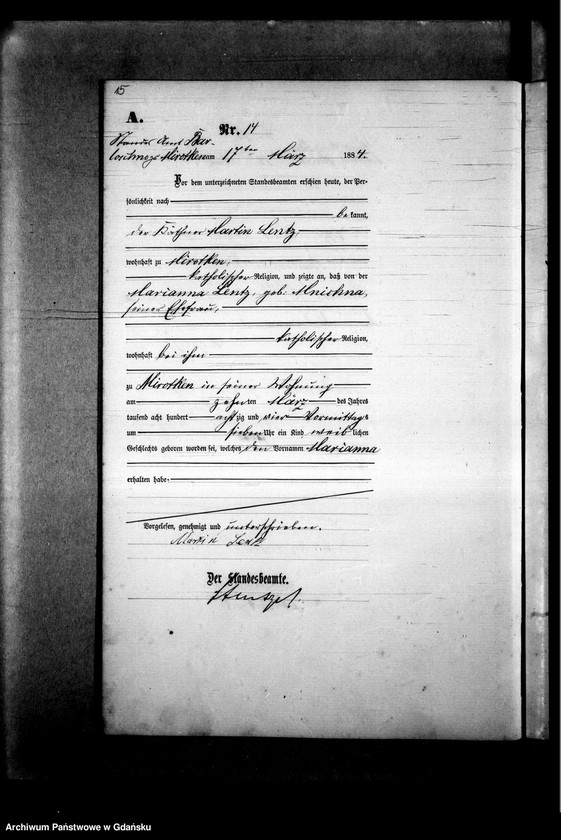 15
A.
Nr. 14
Standes Amt Bar-
Mirotken am 17ten März 1884.
Vor dem unterzeichneten Standesbeamten erschien heute, der Per-
sönlichkeit nach
be kannt,
der Käthner Martin Lentz
wohnhaft zu Mirotken,
katholischer Religion, und zeigte an, daß von der
Marianna Lentz, geb: Mnichna,
seiner Ehefrau,
katholischer Religion,
wohnhaft bei ihm
zu Mirotken in seiner Wohnung
am zehn ten März des Jahres
tausend acht hundert acht zig und vier Vormittags
um sieben Uhr ein Kind weib lichen
Geschlechts geboren worden sei, welches den Vornamen Marianna
erhalten habe.
Vorgelesen, genehmigt und unterschrieben.
Martin Lentz
Der Standesbeamte.
Archiwum Państwowe w Gdańsku